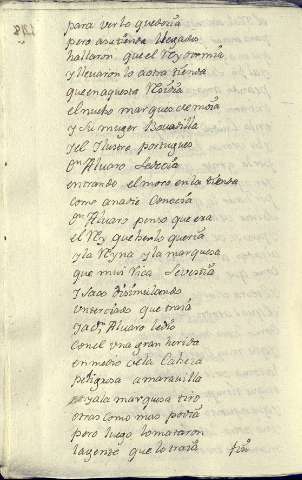 para ver lo que decia
pero a su tienda llegados
hallaron que el Rey dormia
y llevaron lo a otra tienda
que en aquesta Residia
el mucho marques de moia
y su muger Bovadilla
y el Ilustre portugues
Dn Alvaro se decia
entrando el moro en la tienda
como a nadie conocia
Dn Alvaro penso que era
el Rey que herirlo queria
y la Reyna y la marquesa
que mui Rica se vestia
y saco disimulando
un terciado que traia
y a Dn Alvaro le dio
con el una gran herida
en medio de la Cabeza
peligrosa a maravilla
y a la marquesa tiro
otras como mas podia
pero luego lo mataron
la gente que lo traia fin